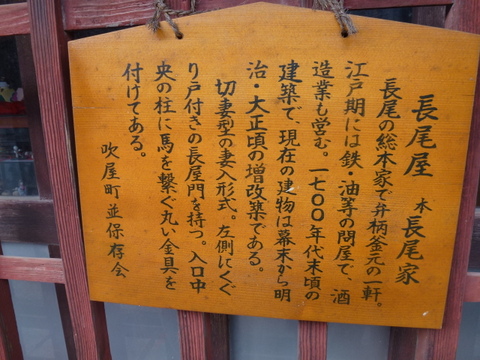 長尾屋 本長尾家
長尾の総本家で弁柄釜元の一軒。
江戸期には鉄・油等の問屋で、酒
造業も営む。一七〇〇年代末頃の
建築で、現在の建物は幕末から明
治・大正頃の増改築である。
切妻型の妻入形式。左側にくぐ
り戸付きの長屋門を持つ。入口中
央の柱に馬を繋ぐ丸い金具を
付けてある。
吹屋町並保存会